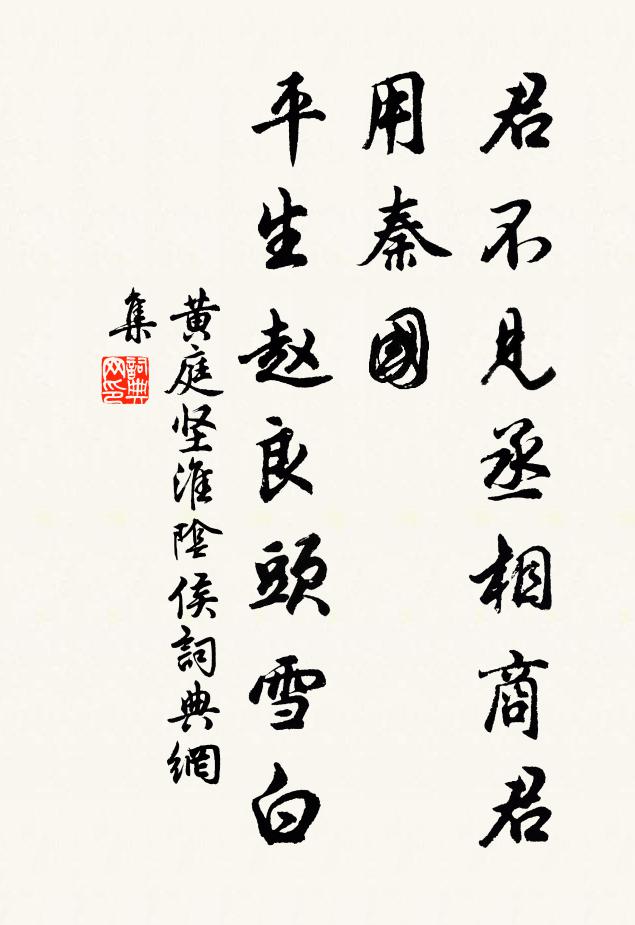 君不見丞相商君
用秦國
平生赵良頭雪白
黄庭坚淮陰侯詞典網
集
詞典
网印